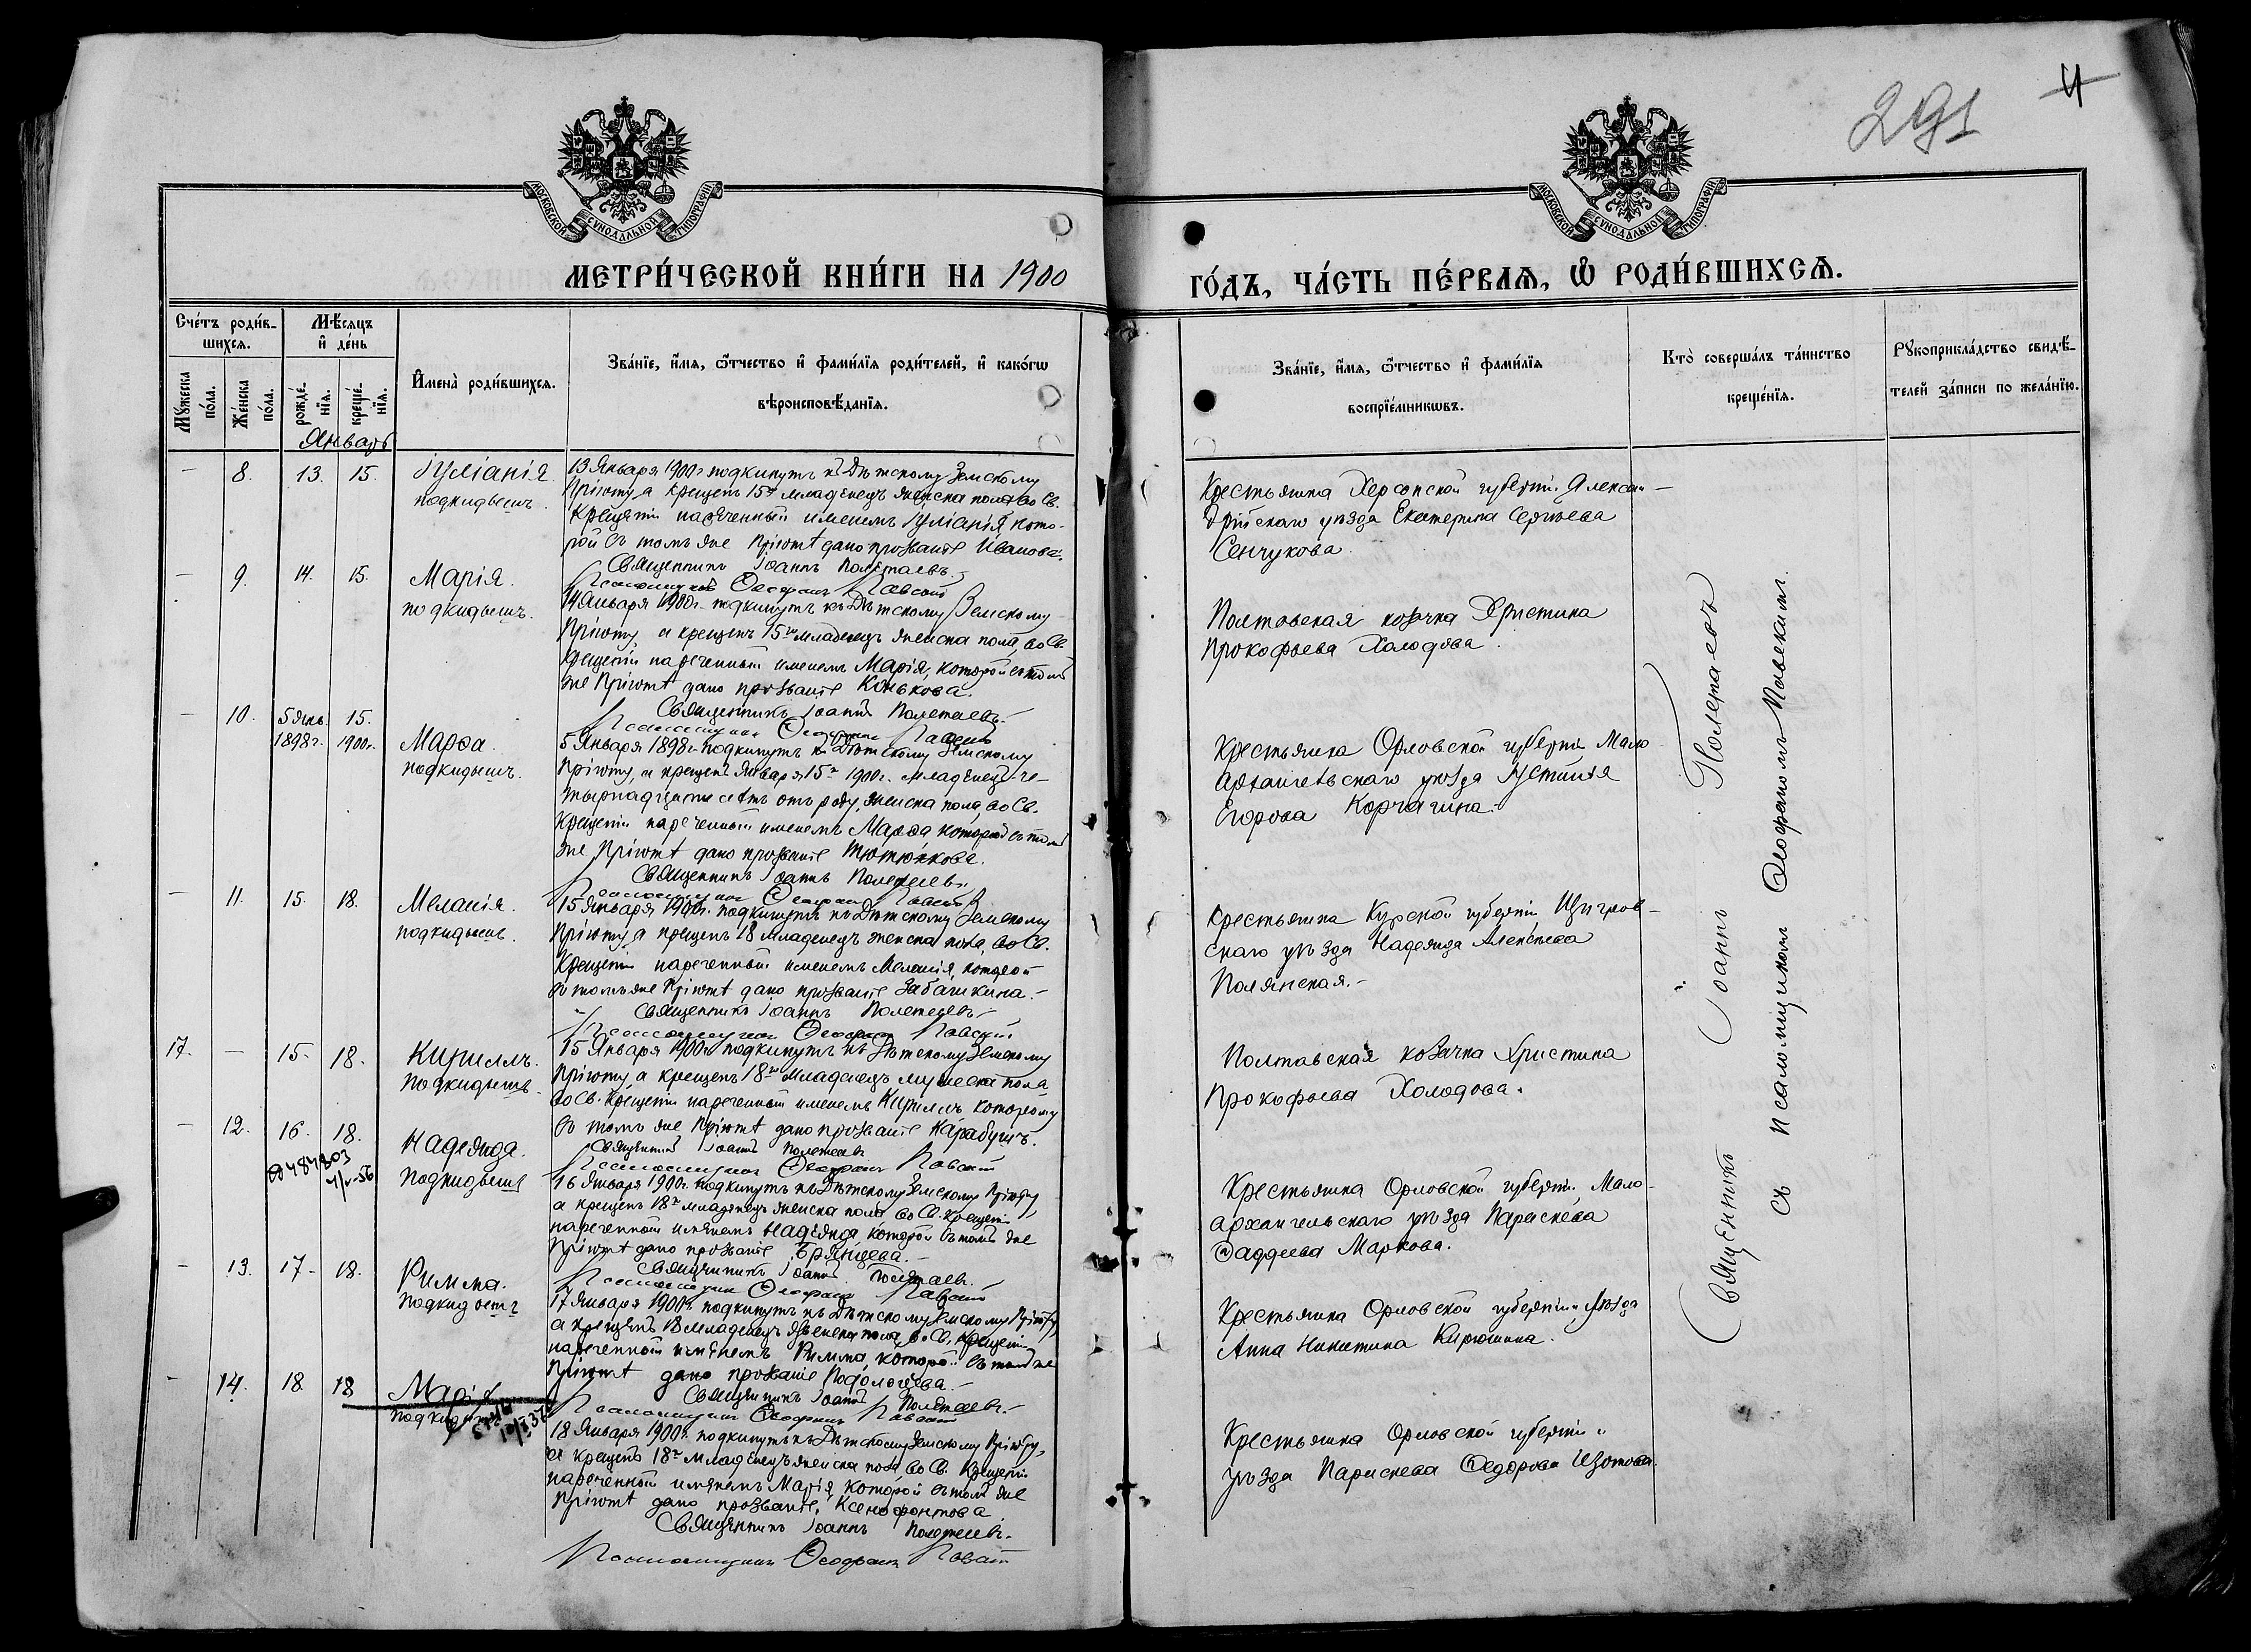 291
4
МОСКОВСКОЙ СѴНОДАЛЬНОЙ ТИПОГРАФІИ
МОСКОВСКОЙ СѴНОДАЛЬНОЙ ТИПОГРАФІИ
МЕТРИ́ЧЕСКОЙ КНИ́ГИ НА 1900
ГО́ДЪ, ЧА́СТЬ ПЕ́РВАѦ, Ѡ҆ РОДИ́ВШИХСѦ.
Сче́тъ роди́в-
шихсѧ.
Мꙋжеска по́ла.
Же́нска по́ла.
Мѣ́сѧцъ
и҆ де́нь
рожде́-
нїѧ.
креще́-
нїѧ.
Январь
И҆мена̀ роди́вшихсѧ.
Зва́нїе, и҆́мѧ, ѻ҆́тчество и҆ фами́лїѧ роди́телей, и҆ како́гѡ
вѣроисповѣ́данїѧ.
Зва́нїе, и҆́мѧ, ѻ҆́тчество и҆ фами́лїѧ
воспрїе́мникѡвъ.
Кто̀ соверша́лъ та́инство
креще́нїѧ.
Рꙋкоприкла́дство свидѣ́-
телей за́писи по жела́нїю.
— 8. 13. 15.
Іуліанія
подкидышъ.
13 Января 1900 г. подкинутъ къ Дѣтскому Земскому
Пріюту, а крещенъ 15го младенецъ женска пола, во Св.
Крещеніи нареченный именемъ Іуліанія, кото-
рой въ томъ же Пріютѣ дано прозваніе Иванова.
Священникъ Іоаннъ Полетаевъ.
Псаломщикъ Ѳеофанъ Павскій
Крестьянка Херсонской губерніи Алексан-
дрійскаго уѣзда Екатерина Сергѣева
Сенчукова.
— 9. 14. 15.
Марія.
подкидышъ.
14 Января 1900 г. подкинутъ къ Дѣтскому Земскому
Пріюту, а крещенъ 15го младенецъ женска пола, во Св.
Крещеніи нареченный именемъ Марія, которой въ томъ
же Пріютѣ дано прозваніе Конькова.
Священникъ Іоаннъ Полетаевъ.
Псаломщикъ Ѳеофанъ Павскій
Полтавская козачка Христина
Прокофьева Холодова.
— 10. 5 янв. 15.
1898 г. 1900 г.
Марѳа.
подкидышъ.
5 Января 1898 г. подкинутъ къ Дѣтскому Земскому
Пріюту, а крещенъ Января 15го 1900 г. младенецъ че-
тырнадцати лѣтъ отъ роду, женска пола, во Св.
Крещеніи нареченный именемъ Марѳа, которой въ томъ
же Пріютѣ дано прозваніе Тютюнкова.
Священникъ Іоаннъ Полетаевъ.
Псаломщикъ Ѳеофанъ Павскій
Крестьянка Орловской губерніи Мало-
архангельскаго уѣзда Устинія
Егорова Корчагина.
— 11. 15. 18.
Меланія.
подкидышъ.
15 Января 1900 г. подкинутъ къ Дѣтскому Земскому
Пріюту, а крещенъ 18 младенецъ женска пола, во Св.
Крещеніи нареченный именемъ Меланія, которой
въ томъ же Пріютѣ дано прозваніе Забашкина.
Священникъ Іоаннъ Полетаевъ.
Псаломщикъ Ѳеофанъ Павскій
Крестьянка Курской губерніи Щигров-
скаго уѣзда Надежда Алексѣева
Полянская.
17. — 15. 18.
Кириллъ.
подкидышъ.
15 Января 1900 г. подкинутъ къ Дѣтскому Земскому
Пріюту, а крещенъ 18го младенецъ мужеска пола
во Св. Крещеніи нареченный именемъ Кириллъ, которому
въ томъ же Пріютѣ дано прозваніе Карабушъ.
Священникъ Іоаннъ Полетаевъ
Псаломщикъ Ѳеофанъ Павскій
Полтавская козачка Христина
Прокофьева Холодова.
— 12. 16. 18.
Надежда.
подкидышъ
16 Января 1900 г. подкинутъ къ Дѣтскому Земскому Пріюту,
а крещенъ 18го младенецъ женска пола во Св. Крещеніи
нареченный именемъ Надежда, которой въ томъ же
Пріютѣ дано прозваніе Брянцева.
Священникъ Іоаннъ Полетаевъ.
Псаломщикъ Ѳеофанъ Павскій
Крестьянка Орловской губерніи Мало-
архангельскаго уѣзда Параскева
Ѳаддеева Маркова.
— 13. 17. 18.
Римма.
подкидышъ
17 Января 1900 г. подкинутъ къ Дѣтскому Земскому Пріюту,
а крещенъ 18 младенецъ женска пола, во Св. Крещеніи
нареченный именемъ Римма, которой въ томъ же
Пріютѣ дано прозваніе
Священникъ Іоаннъ Полетаевъ.
Псаломщикъ Ѳеофанъ Павскій
Крестьянка Орловской губерніи и уѣзда
Анна Никитина Кирюшина.
— 14. 18 18
Марія
подкидышъ
18 Января 1900 г. подкинутъ къ Дѣтскому Земскому Пріюту,
а крещенъ 18го младенецъ женска пола, во Св. Крещеніи
нареченный именемъ Марія, которой въ томъ же
Пріютѣ дано прозваніе, Ксенофонтова
Священникъ Іоаннъ Полетаевъ.
Псаломщикъ Ѳеофанъ Павскій
Крестьянка Орловской губерніи и
уѣзда Параскева Ѳедорова Изотова.
Священникъ Іоаннъ Полетаевъ
съ псаломщикомъ Ѳеофаномъ Павскимъ.